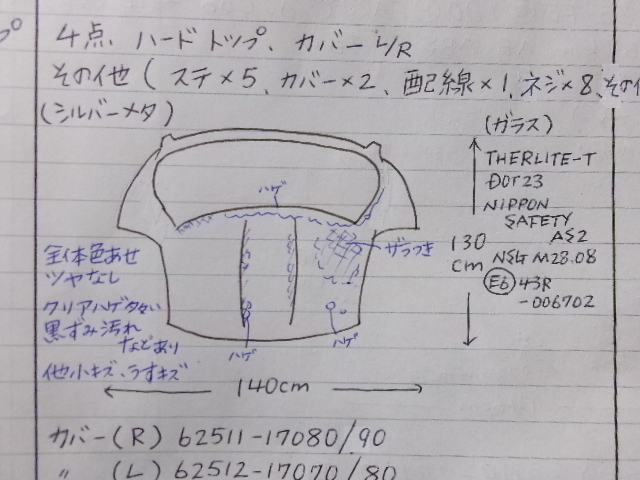 プ
4点、ハードトップ、カバーL/R
その他(ステ×5、カバー×2、配線×1、ネジ×8、その他
(シルバーメタ)
(ガラス)
THERLITE-T
DOT23
NIPPON
SAFETY
AS2
NSG M28.08
E6 43R
-006702
130
cm
ハゲ
ザラつき
全体色あせ
ツヤなし
クリアハゲ多い
黒ずみ汚れ
などあり
他小キズ、うすキズ
ハゲ
ハゲ
140cm
カバー(R) 62511-17080/90
〃 (L) 62512-17070/80